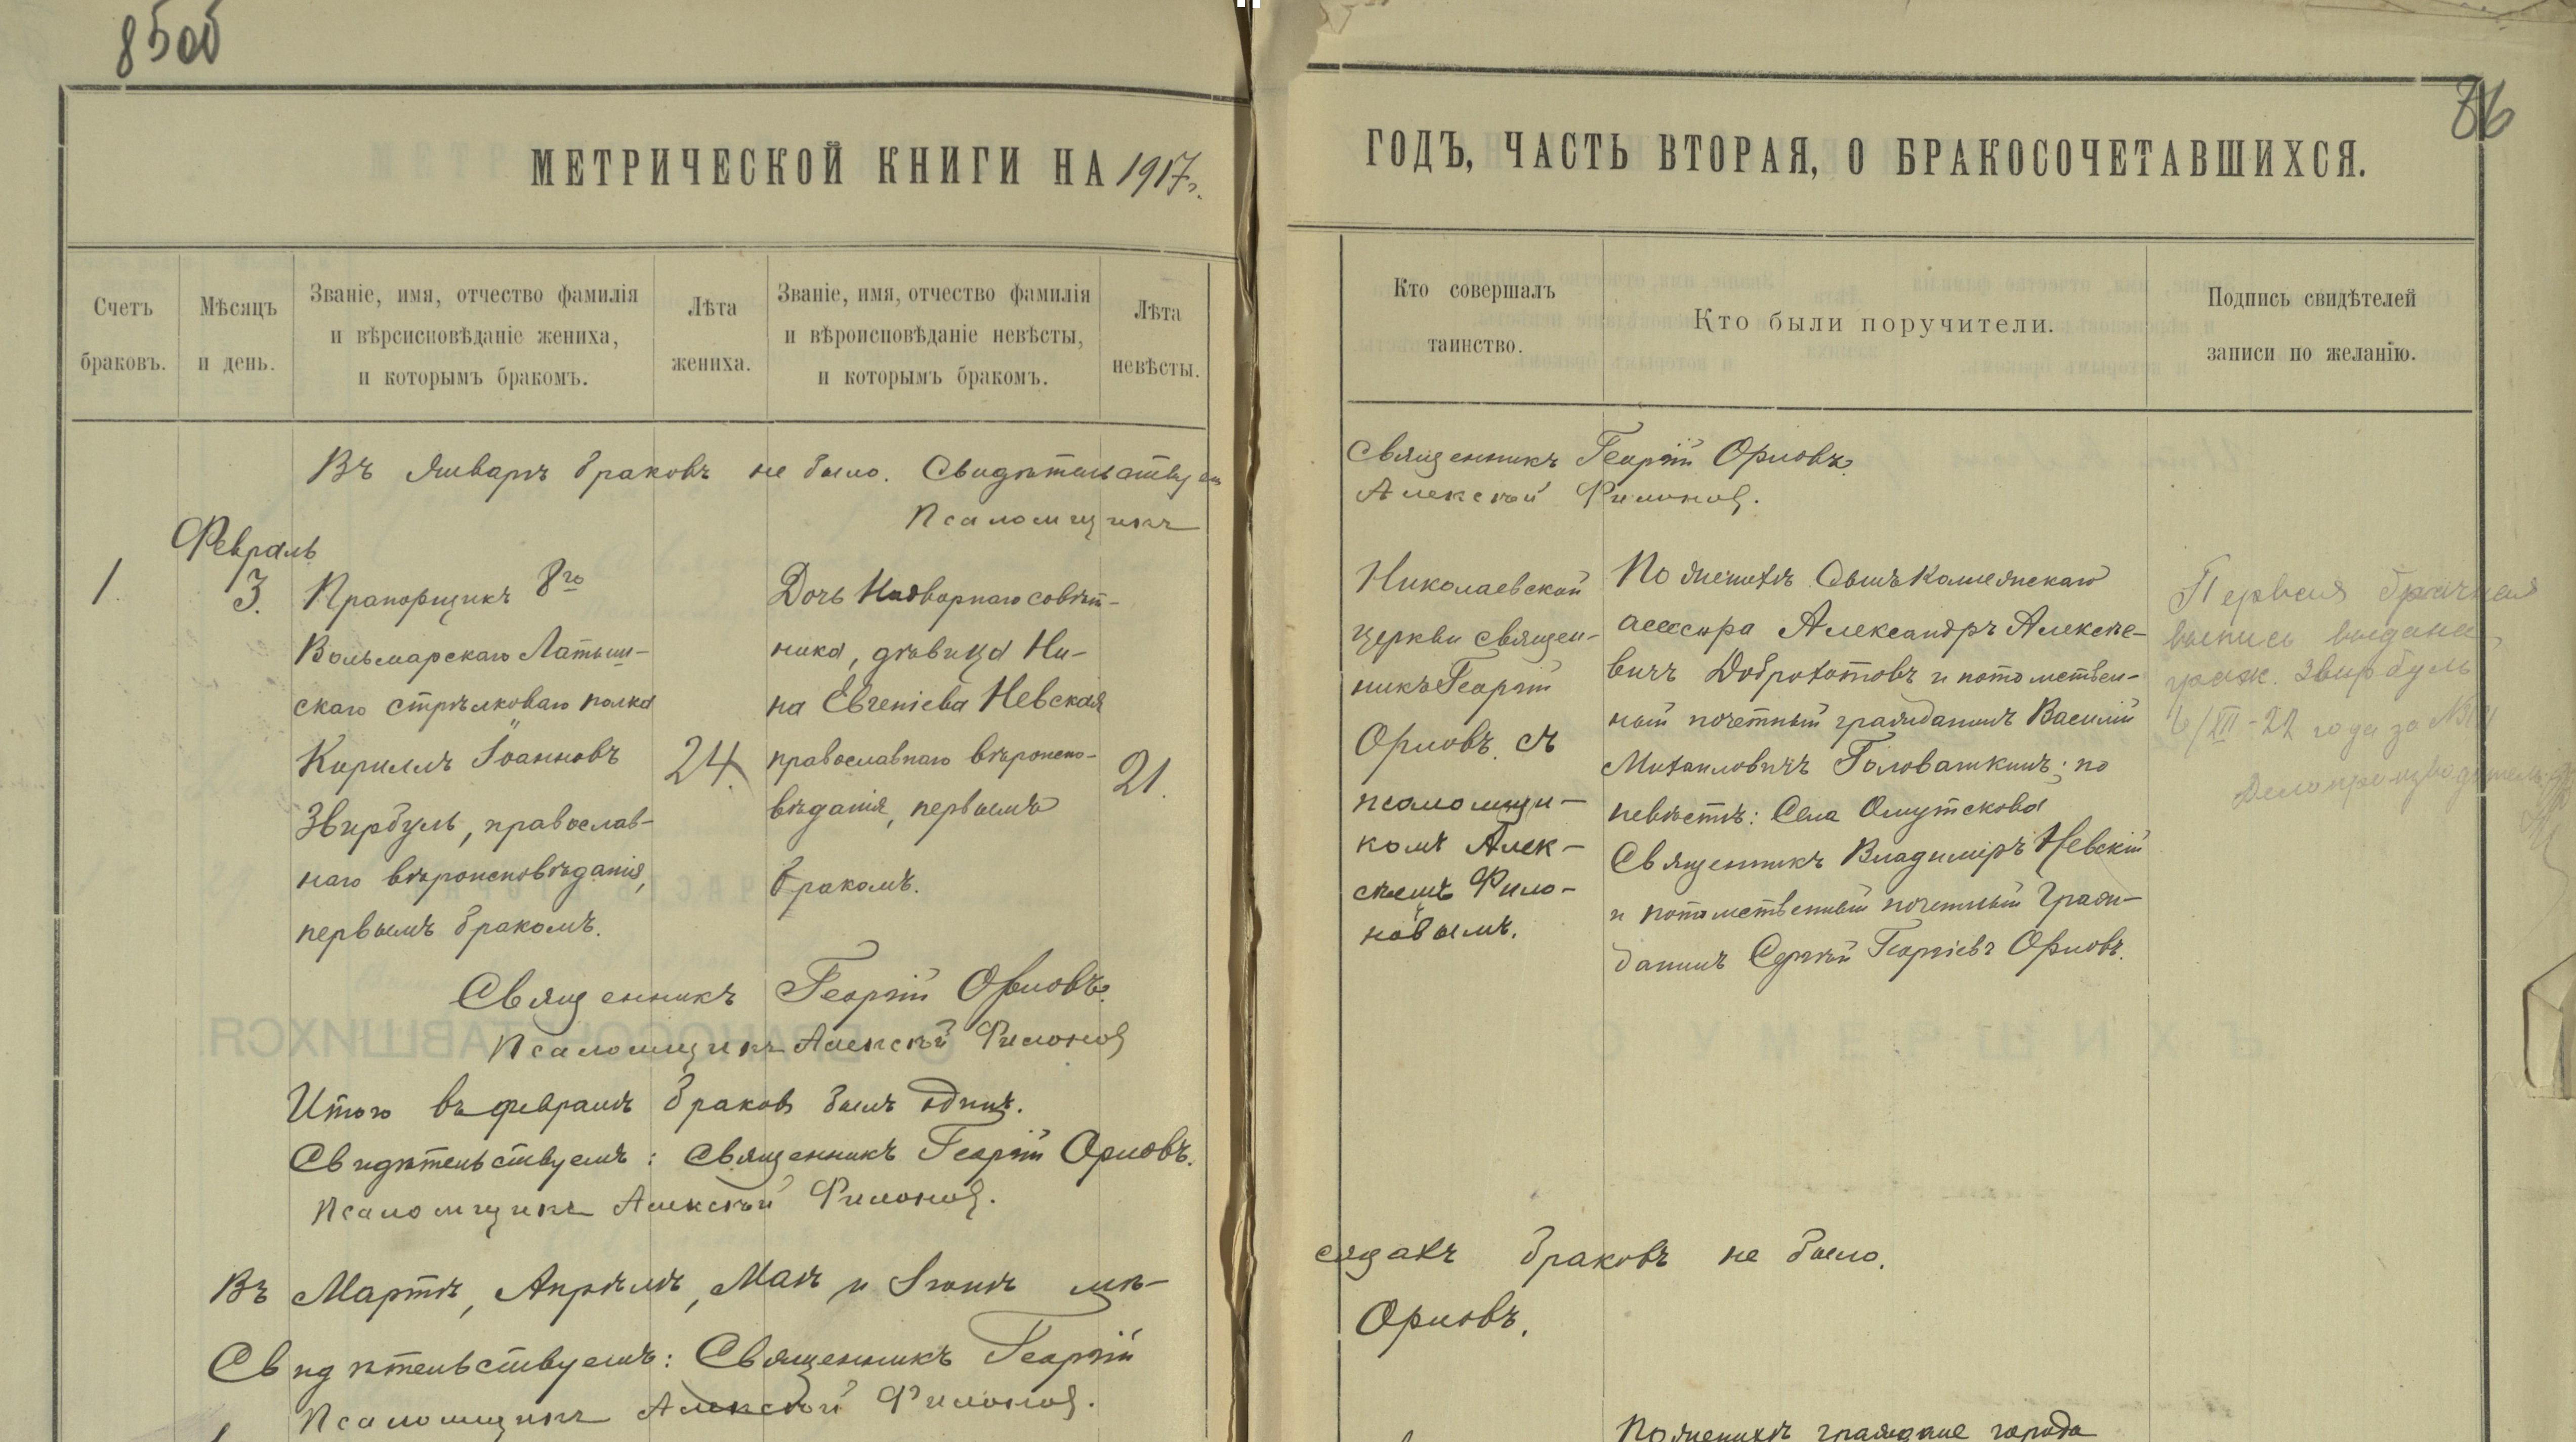 85об
86
МЕТРИЧЕСКОЙ КНИГИ НА 1917 г.
ГОДЪ, ЧАСТЬ ВТОРАЯ, О БРАКОСОЧЕТАВШИХСЯ.
Счетъ
браковъ.
Мѣсяцъ
и день.
Званіе, имя, отчество фамилія
и вѣрсисповѣданіе жениха,
и которымъ бракомъ.
Лѣта
жениха.
Званіе, имя, отчество фамилія
и вѣроисповѣданіе невѣсты,
и которымъ бракомъ.
Лѣта
невѣсты.
Кто совершалъ
таинство.
Кто были поручители.
Подпись свидѣтелей
записи по желанію.
Въ Январѣ браковъ не было. Свидѣтельствуемъ
Священникъ Георгій Орловъ.
Псаломщикъ
Алексѣй Филоновъ.
1.
Февраль
3.
Прапорщикъ 8го
Вольмарскаго Латыш-
скаго стрѣлковаго полка
Кириллъ Іоанновъ
Звирбуль, православ-
наго вѣроисповѣданія,
первымъ бракомъ.
24.
Дочь Надворнаго совѣт-
ника, дѣвица Ни-
на Евгеніева Невская
православнаго вѣроиспо-
вѣданія, первымъ
бракомъ.
21.
Николаевской
церкви священ-
никъ Георгій
Орловъ съ
псаломщи-
комъ Алек-
сѣемъ Фило-
новымъ.
По женихѣ: Сынъ Коллежскаго
ассесора Александръ Алексѣе-
вичъ Доброхотовъ и потомствен-
ный почетный гражданинъ Василій
Михаиловичъ Головашкинъ; по
невѣстѣ: Села Омутскова
Священникъ Владиміръ Невскій
и потомственный почетный граж-
данинъ Сергѣй Георгіевъ Орловъ.
Первая брачная
выпись выдана
граж. Звирбуль
6/XII-22 года за №
Делопроизводитель
Священникъ Георгій Орловъ.
Псаломщикъ Алексѣй Филоновъ
Итого въ февралѣ браковъ былъ одинъ.
Свидѣтельствуемъ: Священникъ Георгій Орловъ.
Псаломщикъ Алексѣй Филоновъ.
Въ Мартѣ, Апрѣлѣ, Маѣ и Іюнѣ мѣ-
сяцахъ браковъ не было.
Свидѣтельствуемъ: Священникъ Георгій
Орловъ.
Псаломщикъ Алексѣй Филоновъ.
По женихѣ граждане города